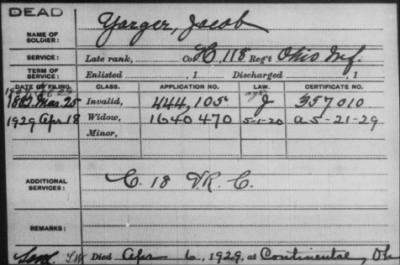 DEAD
NAME OF SOLDIER: Yarger, Jacob
SERVICE: Late rank, Co. H, 118 Reg't Ohio Inf.
TERM OF SERVICE: Enlisted , 1 Discharged , 1
DATE OF FILING. CLASS. APPLICATION NO. LAW. CERTIFICATE NO.
1882 Mar. 25 Invalid, 444,105 J 357010
1929 Apr 18 Widow, 1640470 5-1-20 a 5-21-29
Minor,
ADDITIONAL SERVICES: C. 18 V.R.C.
REMARKS:
Died Apr 6, 1929, at Continental, Oh